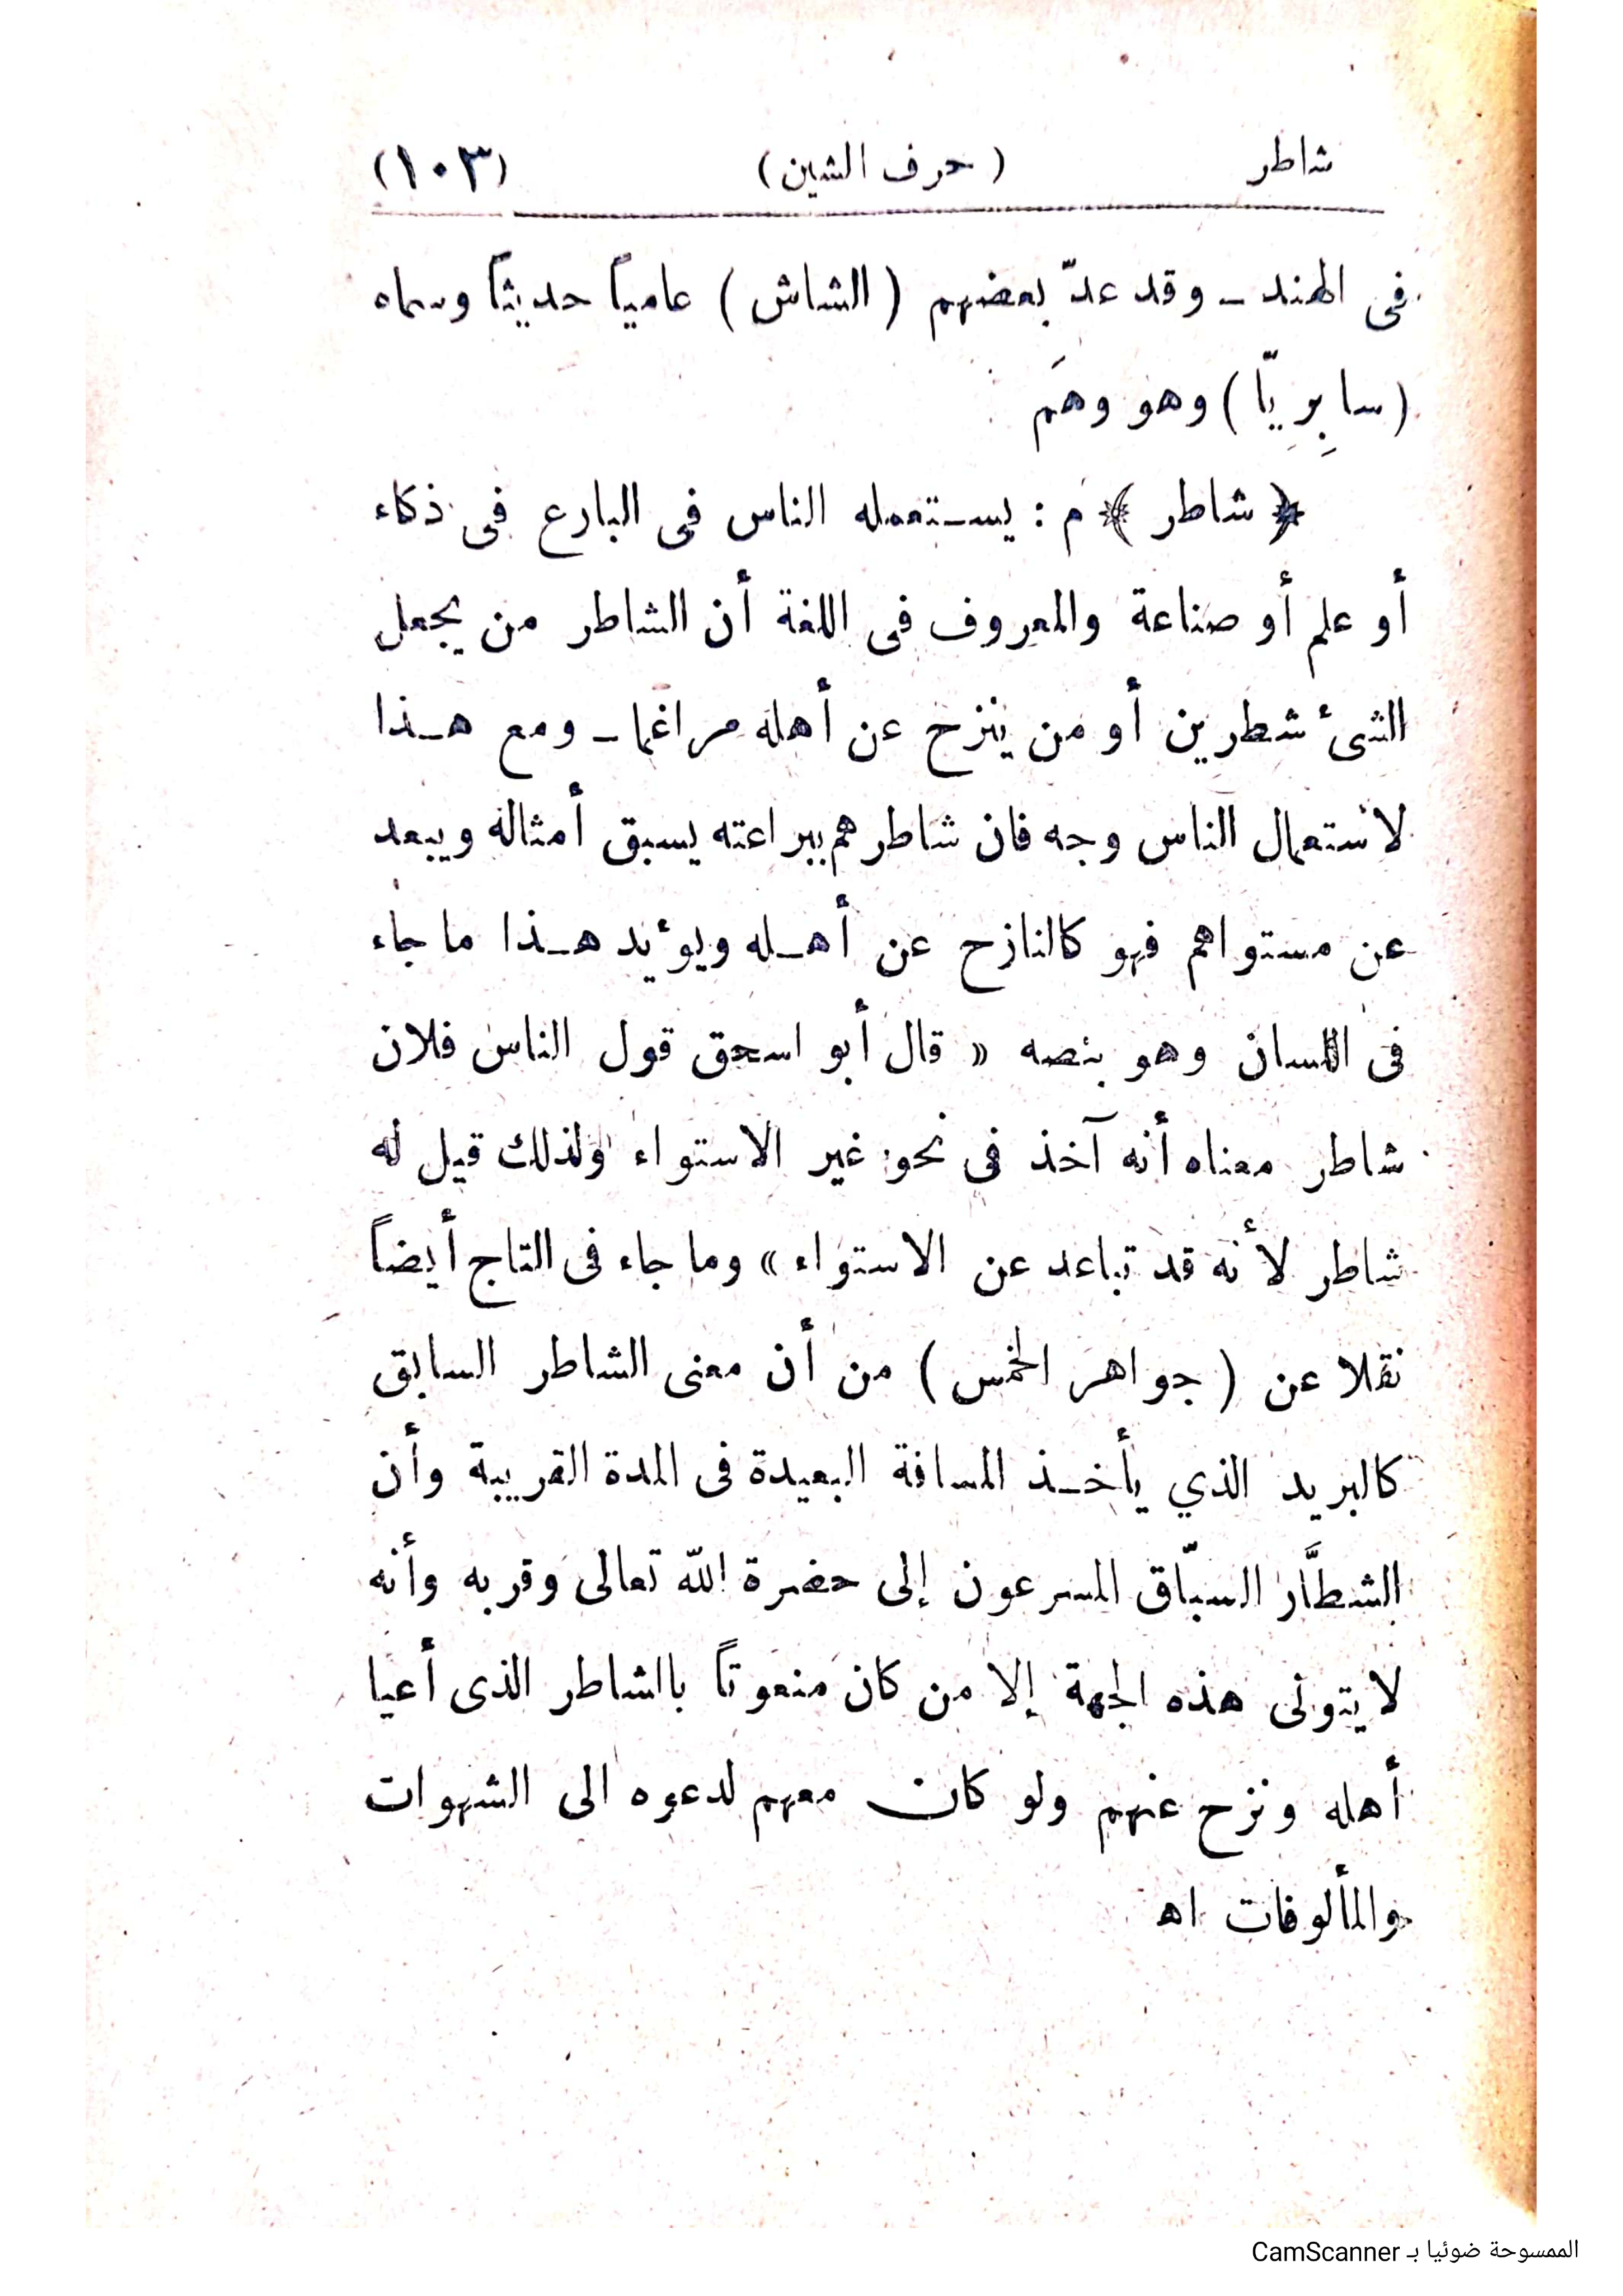 شاطر (حرف الشين) (١٠٣)
فى الهند ـ وقد عدّ بعضهم (الشاش) عامياً حديثاً وسماه
(سابِرِيّا) وهو وهَم
﴿ شاطر ﴾ م : يستعمله الناس فى البارع فى ذكاء
أو علم أو صناعة والمعروف فى اللغة أن الشاطر من يجعل
الشئ شطرين أو من ينزح عن أهله مراغما ـ ومع هـذا
لاستعمال الناس وجه فان شاطرهم ببراعته يسبق أمثاله ويبعد
عن مستواهم فهو كالنازح عن أهـله ويؤيد هـذا ما جاء
فى اللسان وهو بنصه « قال أبو اسحق قول الناس فلان
شاطر معناه أنه آخذ فى نحو غير الاستواء ولذلك قيل له
شاطر لأنه قد تباعد عن الاستواء » وما جاء فى التاج أيضاً
نقلا عن (جواهر الخمس) من أن معنى الشاطر السابق
كالبريد الذي يأخـذ المسافة البعيدة فى المدة القريبة وأن
الشطَّار السبّاق المسرعون إلى حضرة الله تعالى وقربه وأنه
لا يتولى هذه الجهة إلا من كان منعوتاً بالشاطر الذى أعيا
أهله ونزح عنهم ولو كان معهم لدعوه الى الشهوات
والمألوفات اه
الممسوحة ضوئيا بـ CamScanner